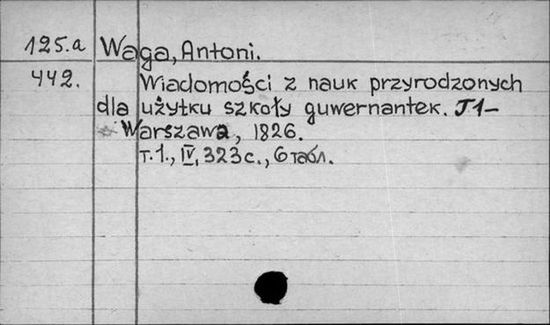 125.a Waga, Antoni.
442. Wiadomości z nauk przyrodzonych
dla użytku szkoły guwernantek. T 1-
Warszawa, 1826.
т.1., IV, 323 с., 6 табл.